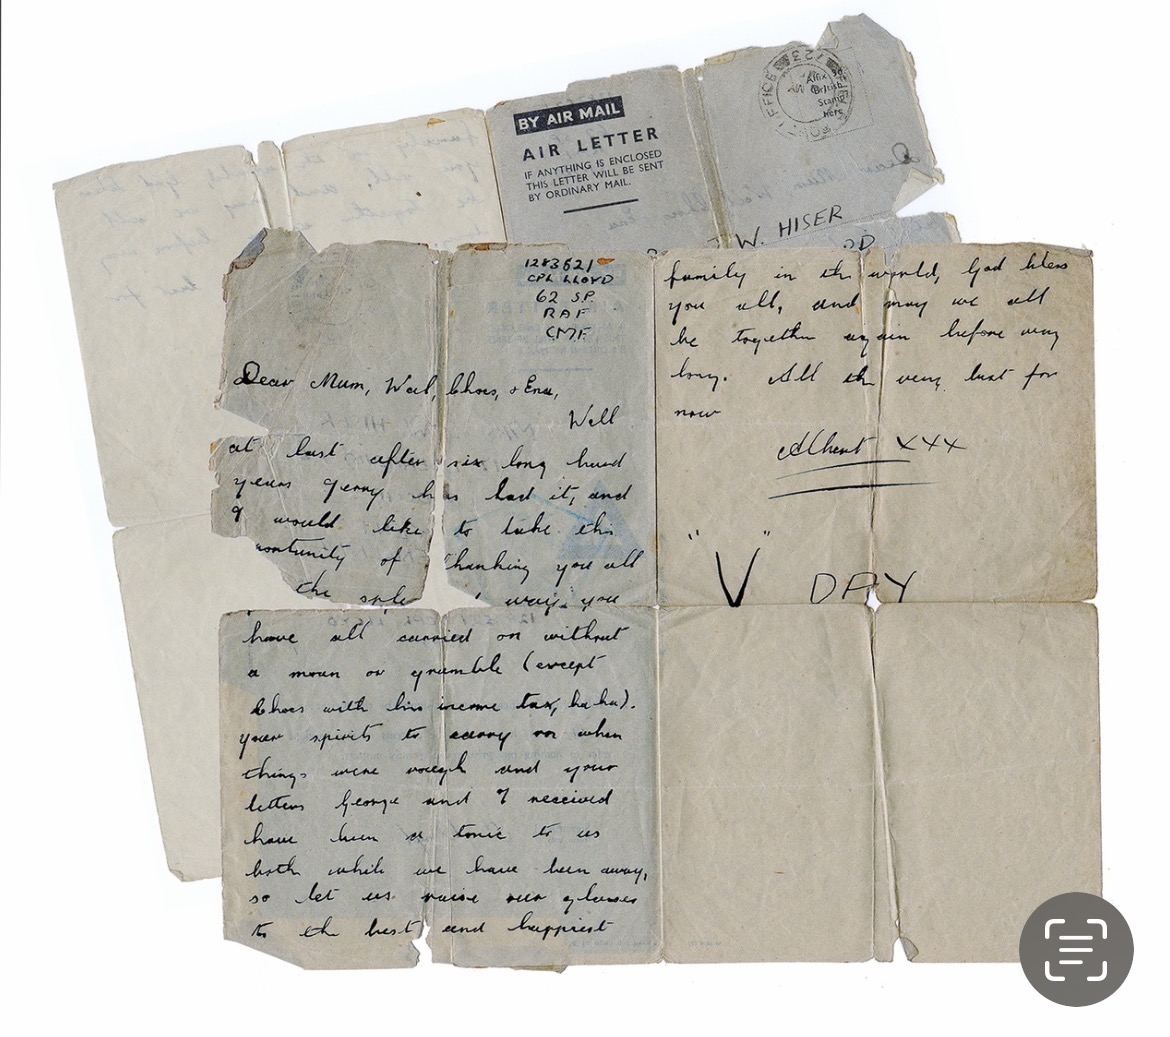 BY AIR MAIL
AIR LETTER
IF ANYTHING IS ENCLOSED
THIS LETTER WILL BE SENT
BY ORDINARY MAIL.
Affix
British
Stamp
here
W. HISER
1283621
CPL LLOYD
62 S.P.
RAF
CMF
Dear Mum, Wal, Chas, & Ena,
Well
at last after six long hard
years Gerry has had it, and
I would like to take this
portunity of thanking you all
the sple way you
have all carried on without
a moan or grumble (except
Chas with his income tax, ha ha).
Your spirits to carry on when
things were rough and your
letters George and I received
have been a tonic to us
both while we have been away,
so let us raise our glasses
to the best and happiest
family in the world, God bless
you all, and may we all
be together again before very
long. All the very best for
now
Albert XXX
"V" DAY